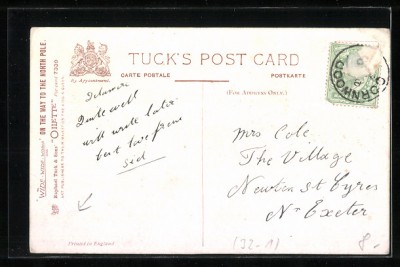 TUCK'S POST CARD
By Appointment.
CARTE POSTALE
POSTKARTE
(FOR ADDRESS ONLY.)
"WIDE WIDE WORLD" ON THE WAY TO THE NORTH POLE.
Raphael Tuck & Sons' "OILETTE" Postcard 7238
Quite well
will write later
best love from
Sid
Printed in England
CORNWOOD
Mrs Cole
The Village
Newton St Cyres
Nr Exeter
8-